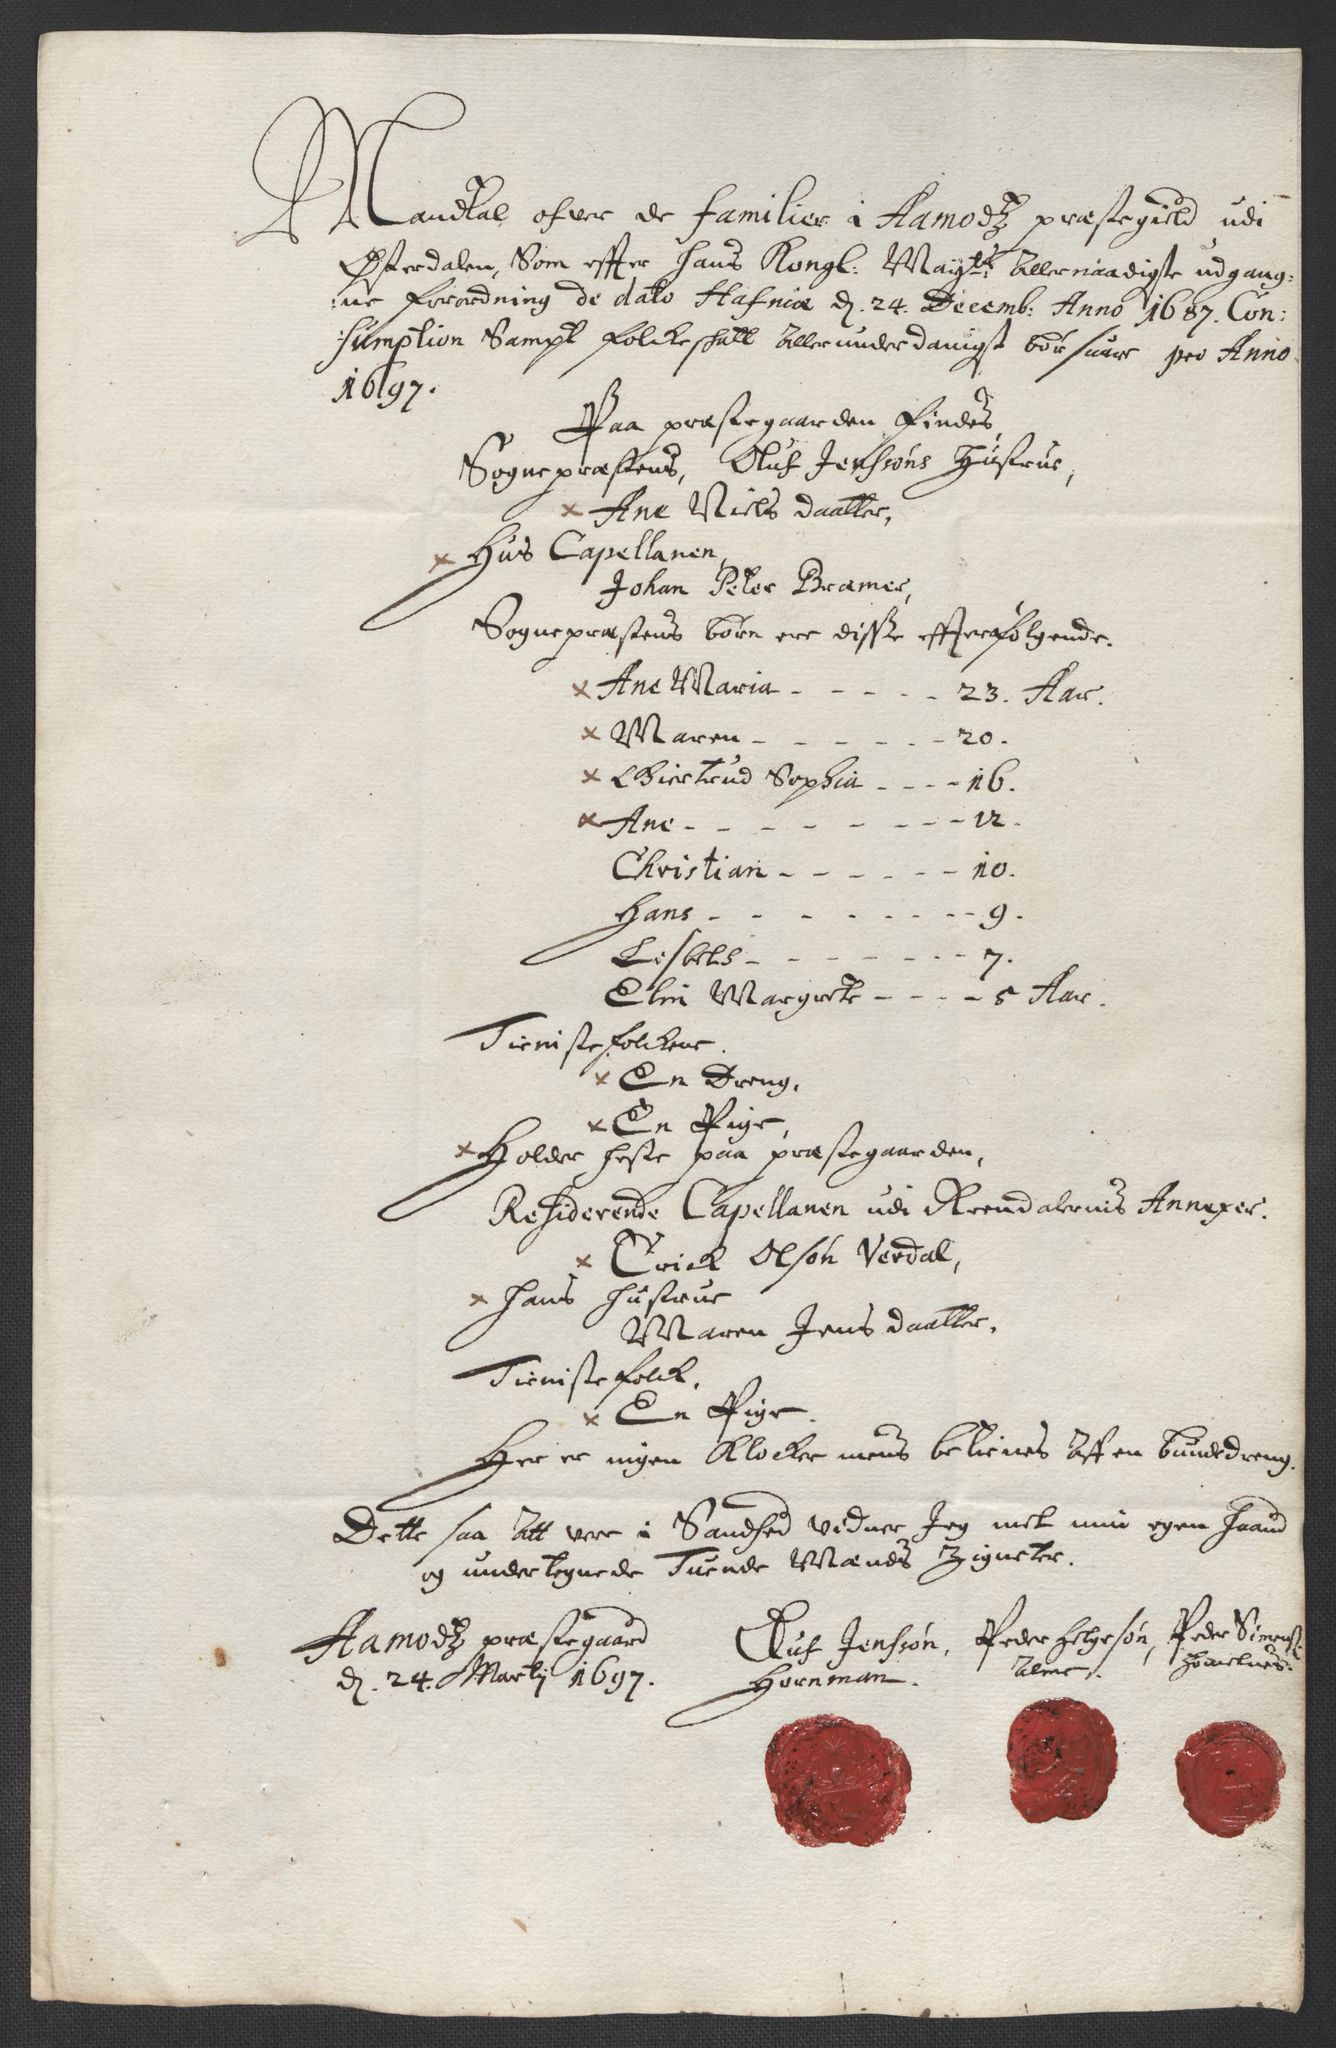 Mandtal ofver de familier i Aamodtz præstegield udi
Østerdalen, Som effter Hans Kongl: Maytz: Allernaadigste udgang:
:ne forordning de dato Hafniæ d. 24. Decemb: Anno 1687. Con:
:sumption Sampt folckeskatt Allerunderdanigst bør suare pro Anno
1697.
Paa præstegaarden findes,
Sognepræstens, Oluf Jenssøns Hustrue,
× Ane Niels daatter,
× Hus Capellanen,
Johan Peter Bræmer,
Sognepræstens børn ere disse effterfølgende.
× Ane Maria - - - - - 23. Aar.
× Maren - - - - - - 20.
× Giertrud Sophia - - - - 16.
× Ane - - - - - - - - 12.
Christian - - - - - - 10.
Hans - - - - - - - - 9.
Lisbeth - - - - - - - 7.
Elin Margrete - - - - 5 Aar.
Tienistefolckene.
× En Dreng,
× En Pige,
× Holder heste paa præstegaarden,
Residerende Capellanen udi Rendalernis Annexer.
× Erick Olsøn Verdal,
× Hans hustrue
Maren Jens daatter,
Tienistefolck,
× En Pige.
Her er ingen Klocker mens betienes Aff en bundedreng.
Dette saa Att vere i Sandhed vidner Jeg met min egen Haand
og undertegnede Tuende Mænds Zigneter.
Aamodtz præstegaard
d. 24. Martij 1697.
Oluf Jenssøn, Peder Helgesøn, Peder Simens:
Hornman.